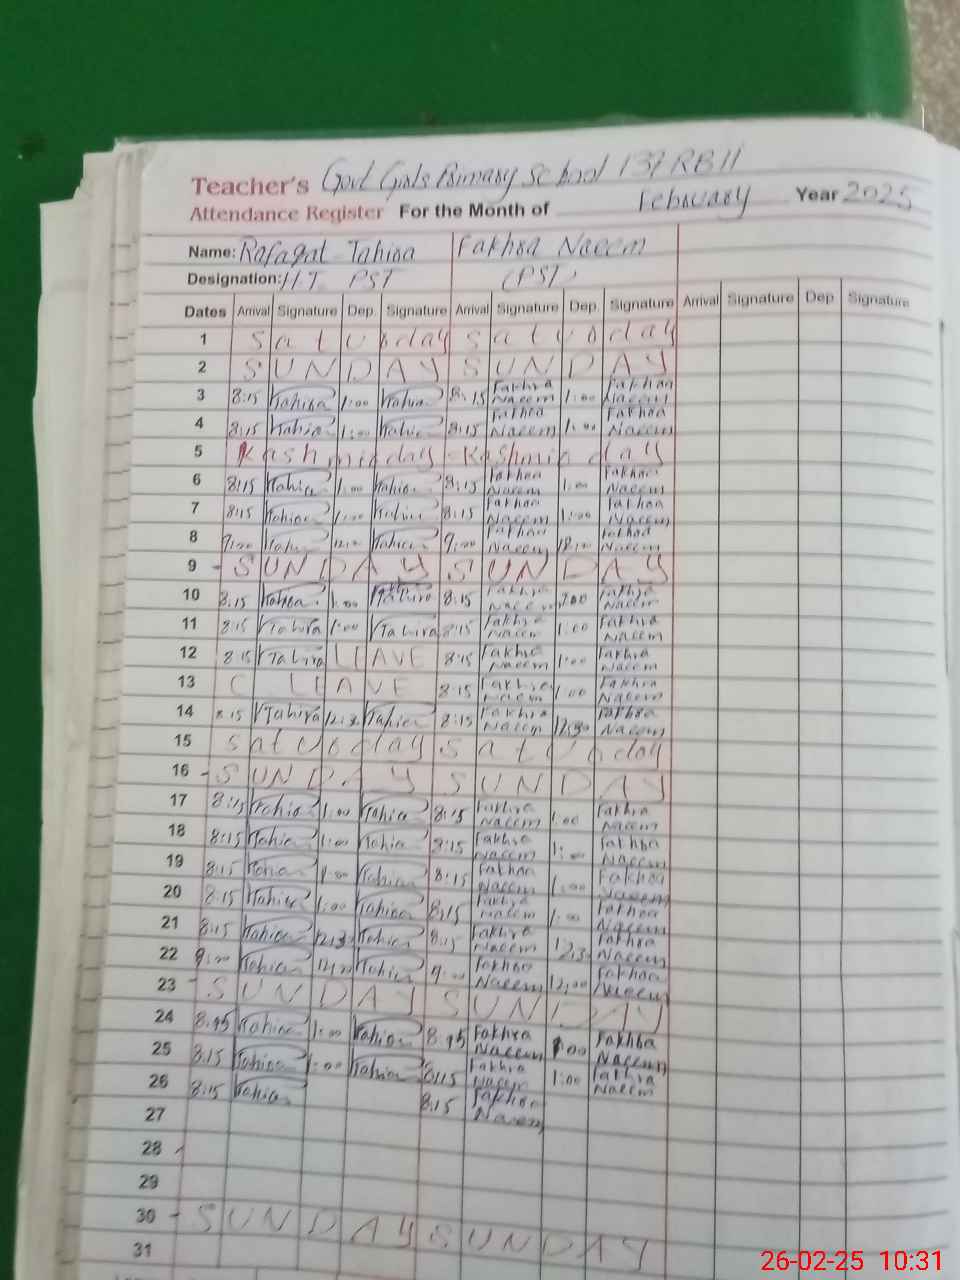 Teacher's Govt Girls Primary School 137 RB II
Attendance Register For the Month of February Year 2025
Name: Rafaqat Tahira Fakhra Naeem
Designation: H.T PST (PST)
Dates Arrival Signature Dep. Signature Arrival Signature Dep. Signature Arrival Signature Dep Signature
1 Saturday Saturday
2 SUNDAY SUNDAY
3 8:15 Tahira 1:00 Tahira 8:15 Fakhra Naeem 1:00 Fakhra Naeem
4 8:15 Tahira 1:00 Tahira 8:15 Fakhra Naeem 1:00 Fakhra Naeem
5 Kashmir day Kashmir day
6 8:15 Tahira 1:00 Tahira 8:15 Fakhra Naeem 1:00 Fakhra Naeem
7 8:15 Tahira 1:00 Tahira 8:15 Fakhra Naeem 1:00 Fakhra Naeem
8 9:00 Tahira Tahira 9:00 Fakhra Naeem Fakhra Naeem
9 SUNDAY SUNDAY
10 8:15 Tahira 1:00 Tahira 8:15 Fakhra Naeem Fakhra Naeem
11 8:15 Tahira 1:00 Tahira 8:15 Fakhra Naeem 1:00 Fakhra Naeem
12 8:15 Tahira LEAVE 8:15 Fakhra Naeem 1:00 Fakhra Naeem
13 C LEAVE 8:15 Fakhra Naeem 1:00 Fakhra Naeem
14 8:15 Tahira 12:30 Tahira 8:15 Fakhra Naeem 12:30 Fakhra Naeem
15 Saturday Saturday
16 SUNDAY SUNDAY
17 8:15 Tahira 1:00 Tahira 8:15 Fakhra Naeem 1:00 Fakhra Naeem
18 8:15 Tahira 1:00 Tahira 8:15 Fakhra Naeem 1:00 Fakhra Naeem
19 8:15 Tahira 1:00 Tahira 8:15 Fakhra Naeem 1:00 Fakhra Naeem
20 8:15 Tahira 1:00 Tahira 8:15 Fakhra Naeem 1:00 Fakhra Naeem
21 8:15 Tahira 12:30 Tahira 8:15 Fakhra Naeem 12:30 Fakhra Naeem
22 9:00 Tahira Tahira 9:00 Fakhra Naeem 12:00 Fakhra Naeem
23 SUNDAY SUNDAY
24 8:45 Tahira 1:00 Tahira 8:45 Fakhra Naeem 1:00 Fakhra Naeem
25 8:15 Tahira 1:00 Tahira 8:15 Fakhra Naeem 1:00 Fakhra Naeem
26 8:15 Tahira 8:15 Fakhra Naeem
27
28
29
30 SUNDAY SUNDAY
31
26-02-25 10:31